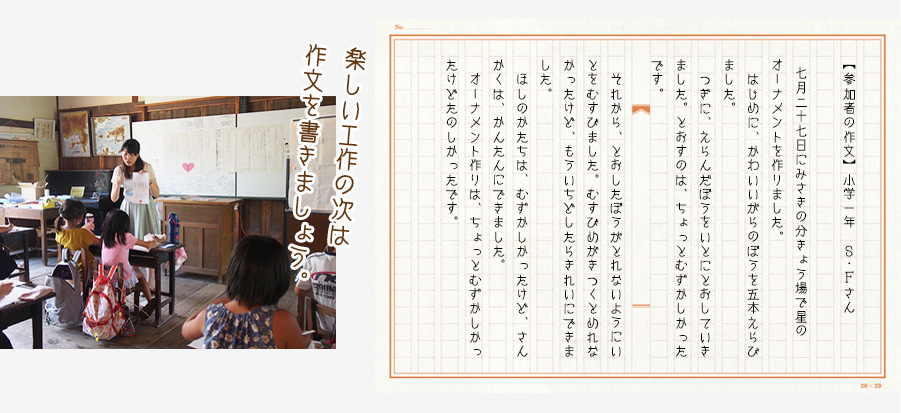 楽しい工作の次は
作文を書きましょう。
No.
【参加者の作文】小学一年　S・Fさん
七月二十七日にみさきの分きょう場で星の
オーナメントを作りました。
はじめに、かわいいがらのぼうを五本えらび
ました。
つぎに、えらんだぼうをいとにとおしていき
ました。とおすのは、ちょっとむずかしかった
です。
それから、とおしたぼうがとれないようにい
とをむすびました。むすびめがきつくとめれな
かったけど、もういちどしたらきれいにできま
した。
ほしのかたちは、むずかしかったけど、さん
かくは、かんたんにできました。
オーナメント作りは、ちょっとむずかしかっ
たけどたのしかったです。
20×20